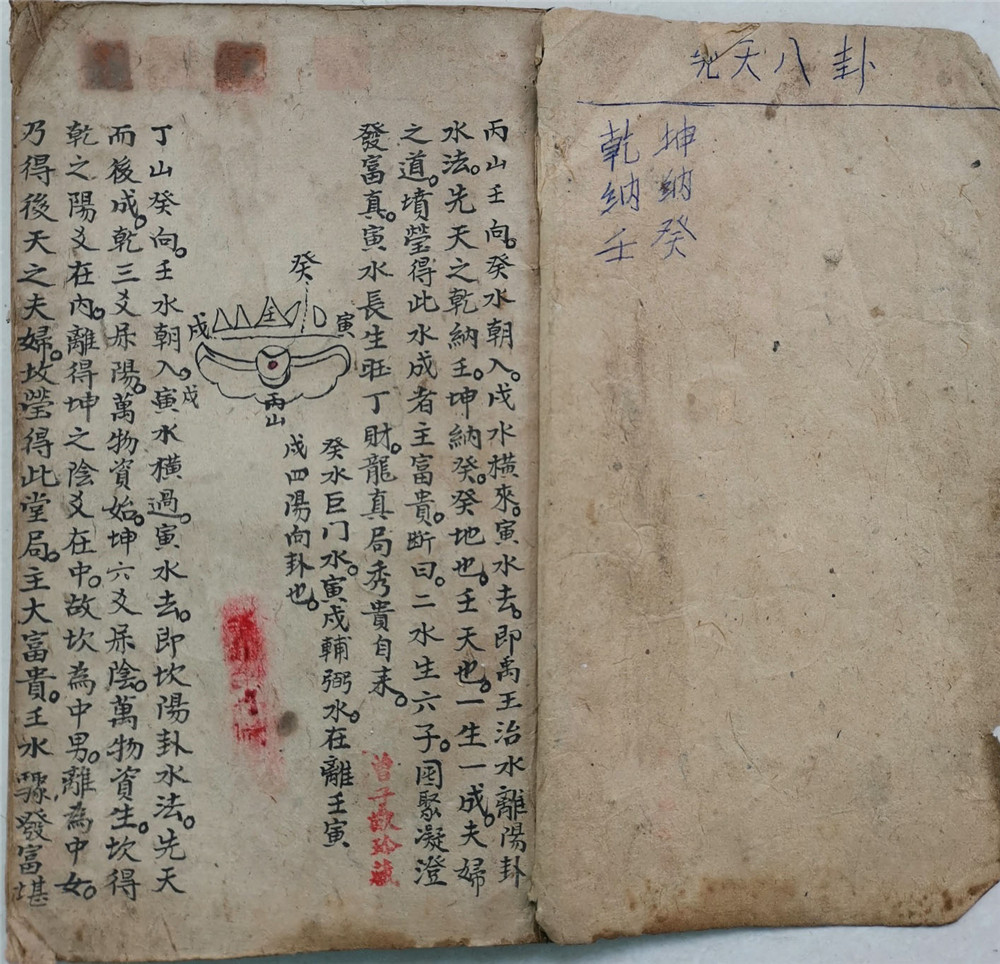 先天八卦
坤納癸
乾納壬
丙山壬向。癸水朝入。戍水橫來。寅水去。即禹王治水離陽卦
水法。先天之乾納壬。坤納癸。癸地也。壬天也。一生一成。夫婦
之道。墳瑩得此水成者主富貴。断曰。二水生六子。團聚凝澄
發富真。寅水長生旺丁財。龍真局秀貴自来。
曾子敬珍藏
癸水巨门水。寅戍輔弼水。在離壬寅
戍四陽向卦也。
癸
寅
壬
戍
戍
丙山
丁山癸向。壬水朝入。寅水橫過。寅水去。即坎陽卦水法。先天
而後成。乾三爻屎陽。萬物資始。坤六爻屎陰。萬物資生。坎得
乾之陽爻在內。離得坤之陰爻在中。故坎為中男。離為中女。
乃得後天之夫婦。坟瑩得此堂局。主大富貴。壬水驟發富堪